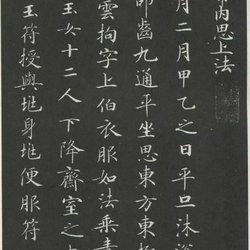 芮思上法
月二月甲乙之日平旦沐浴
叩齒九通平坐思東方東極
雲拘字上伯衣服如法乘青
玉女十二人下降齋室之
玉符授與𡊮身𡊮便服符